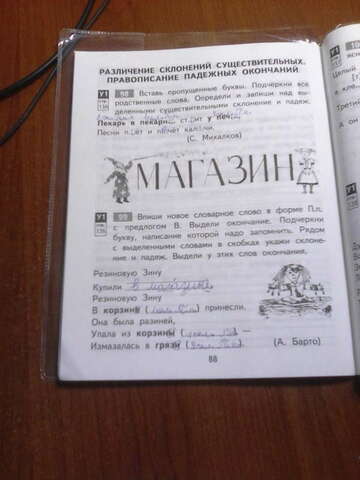 РАЗЛИЧЕНИЕ СКЛОНЕНИЙ СУЩЕСТВИТЕЛЬНЫХ.
ПРАВОПИСАНИЕ ПАДЕЖНЫХ ОКОНЧАНИЙ
У1 98 Вставь пропущенные буквы. Подчеркни все
родственные слова. Определи и запиши над вы-
деленными существительными склонение и падеж.
Пекарь в пекарне ст ит у печи
Песни п ёт и п чёт кал чи.
(С. Михалков)
МАГАЗИН
У1 99 Впиши новое словарное слово в форме П.п.
с предлогом В. Выдели окончание. Подчеркни
букву, написание которой надо запомнить. Рядом
с выделенными словами в скобках укажи склоне-
ние и падеж. Выдели у этих слов окончания.
Резиновую Зину
Купили в магазине.
Резиновую Зину
В корзине ( ) принесли.
Она была разиней,
Упала из корзины ( ) –
Измазалась в грязи ( ) (А. Барто)
88
Целый
Трети